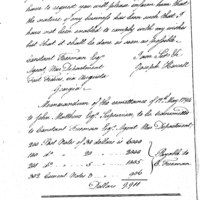 have to request you will please inform him that
the nature of my hearings has been such that I have
not been enabled to comply with his wishes
but that it shall be done as soon as possible.
Constant Freeman Esqr. I am Sir &c.
Agent War Department Joseph Howell
Fort Fidius, via Augusta
Georgia
Memorandum of the remittance of 17th May 1794
to John Matthews Esqr. Supervisor, to be transmitted
to Constant Freeman Esqr. Agent War Department
200 Post Notes of 30 dollars is 6000
100 do " 20 2000 Payable to
201 do " 5 1005 C. Freeman
302 Current Notes 3 906
Dollars 9,911